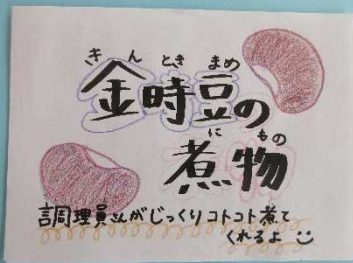 きんときまめ
金時豆の
にもの
煮物
調理員さんがじっくりコトコト煮て
くれるよ